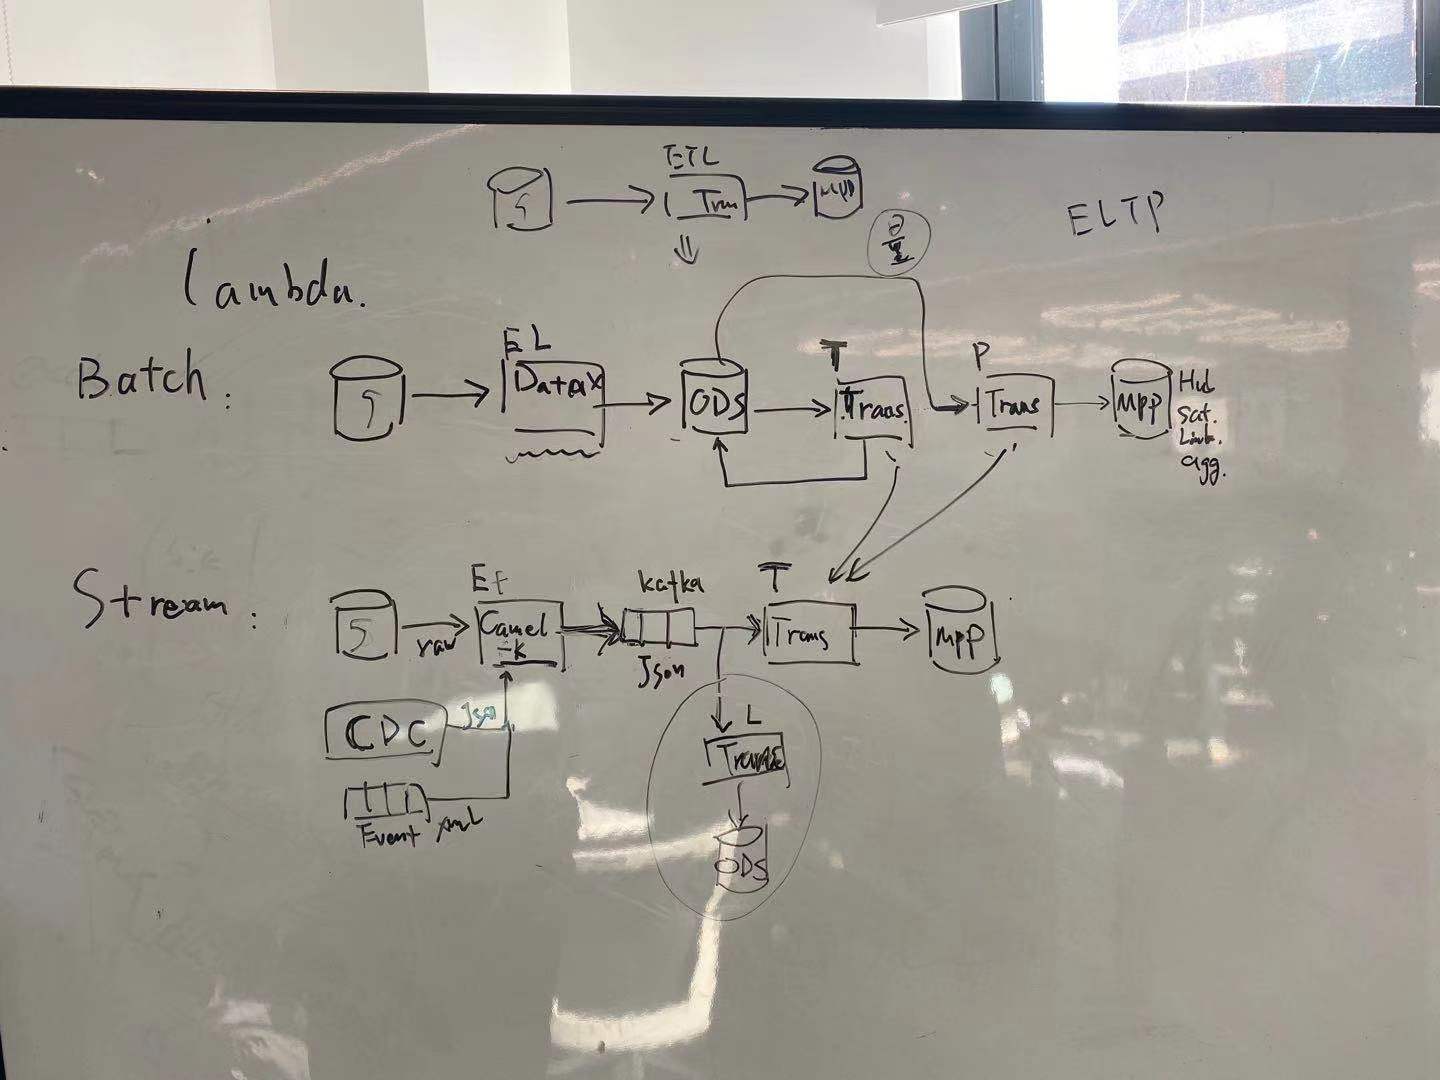 ETL
S
Tran
MPP
ELTP
lambda.
Batch:
S
EL
DataX
ODS
T
Trans.
P
Trans
MPP
Hub
Sat.
Link.
agg.
Stream:
S
raw
Camel
-K
kafka
Json
T
Trans
MPP
CDC
Json
Event
xml
L
Trans
ODS